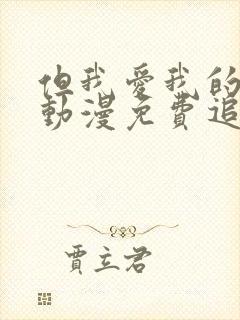 但我愛我的
動漫免費追
賈立君